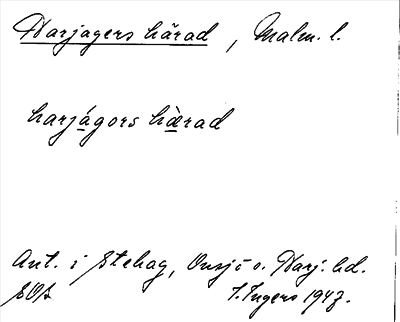 Harjagers härad, Malm. l.
harjágors hàrad
Ant. i Stehag, Onsjö o. Harj. hd.
I. Ingers 1947.